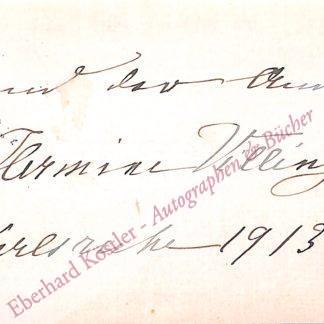 und der Aus
Hermine Villing
Karlsruhe 1913
Eberhard Köstler - Autographen & Bücher